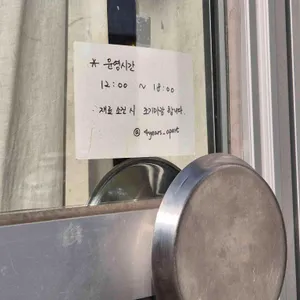 * 운영시간
12:00 ~ 18:00
. 재료 소진 시 조기마감 합니다.
@ 4years_apart